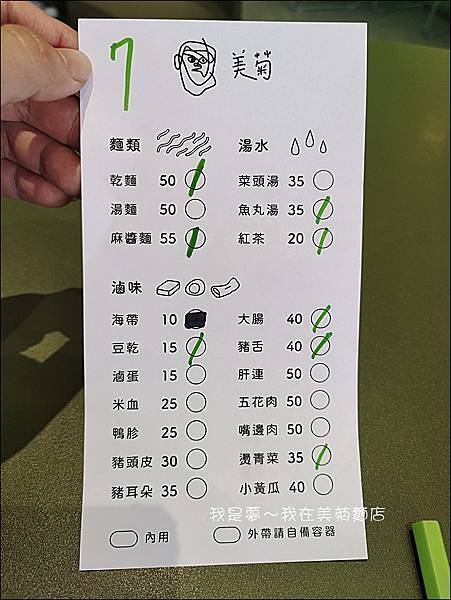 7 美菊
麵類 湯水
乾麵 50 菜頭湯 35
湯麵 50 魚丸湯 35
麻醬麵 55 紅茶 20
滷味
海帶 10 大腸 40
豆乾 15 豬舌 40
滷蛋 15 肝連 50
米血 25 五花肉 50
鴨胗 25 嘴邊肉 50
豬頭皮 30 燙青菜 35
豬耳朵 35 小黃瓜 40
我是夢～我在美菊麵店
內用 外帶請自備容器